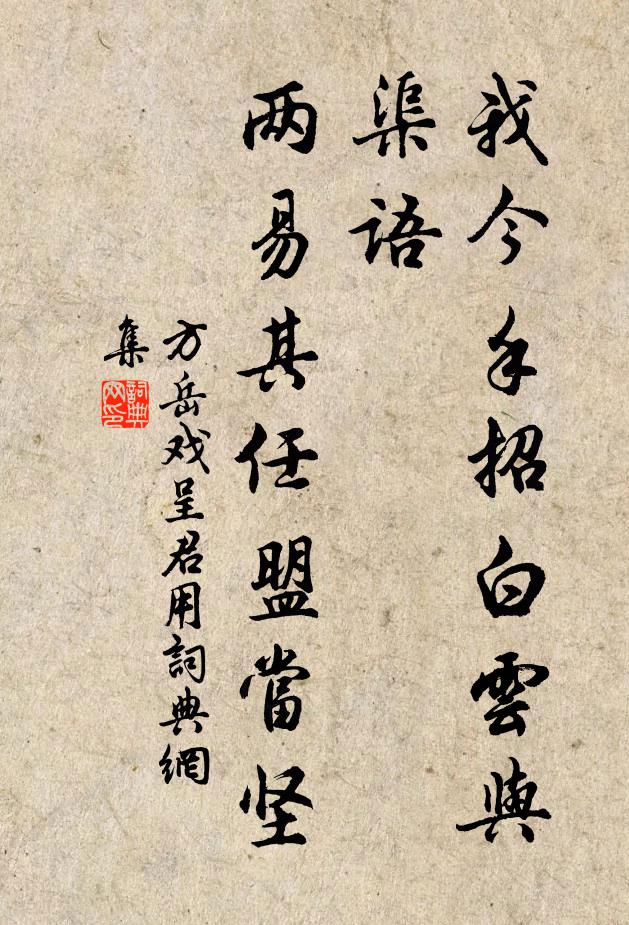 我今手招白雲與
渠語
两易其任盟當坚
方岳戏呈君用詞典網
集
詞典
网印